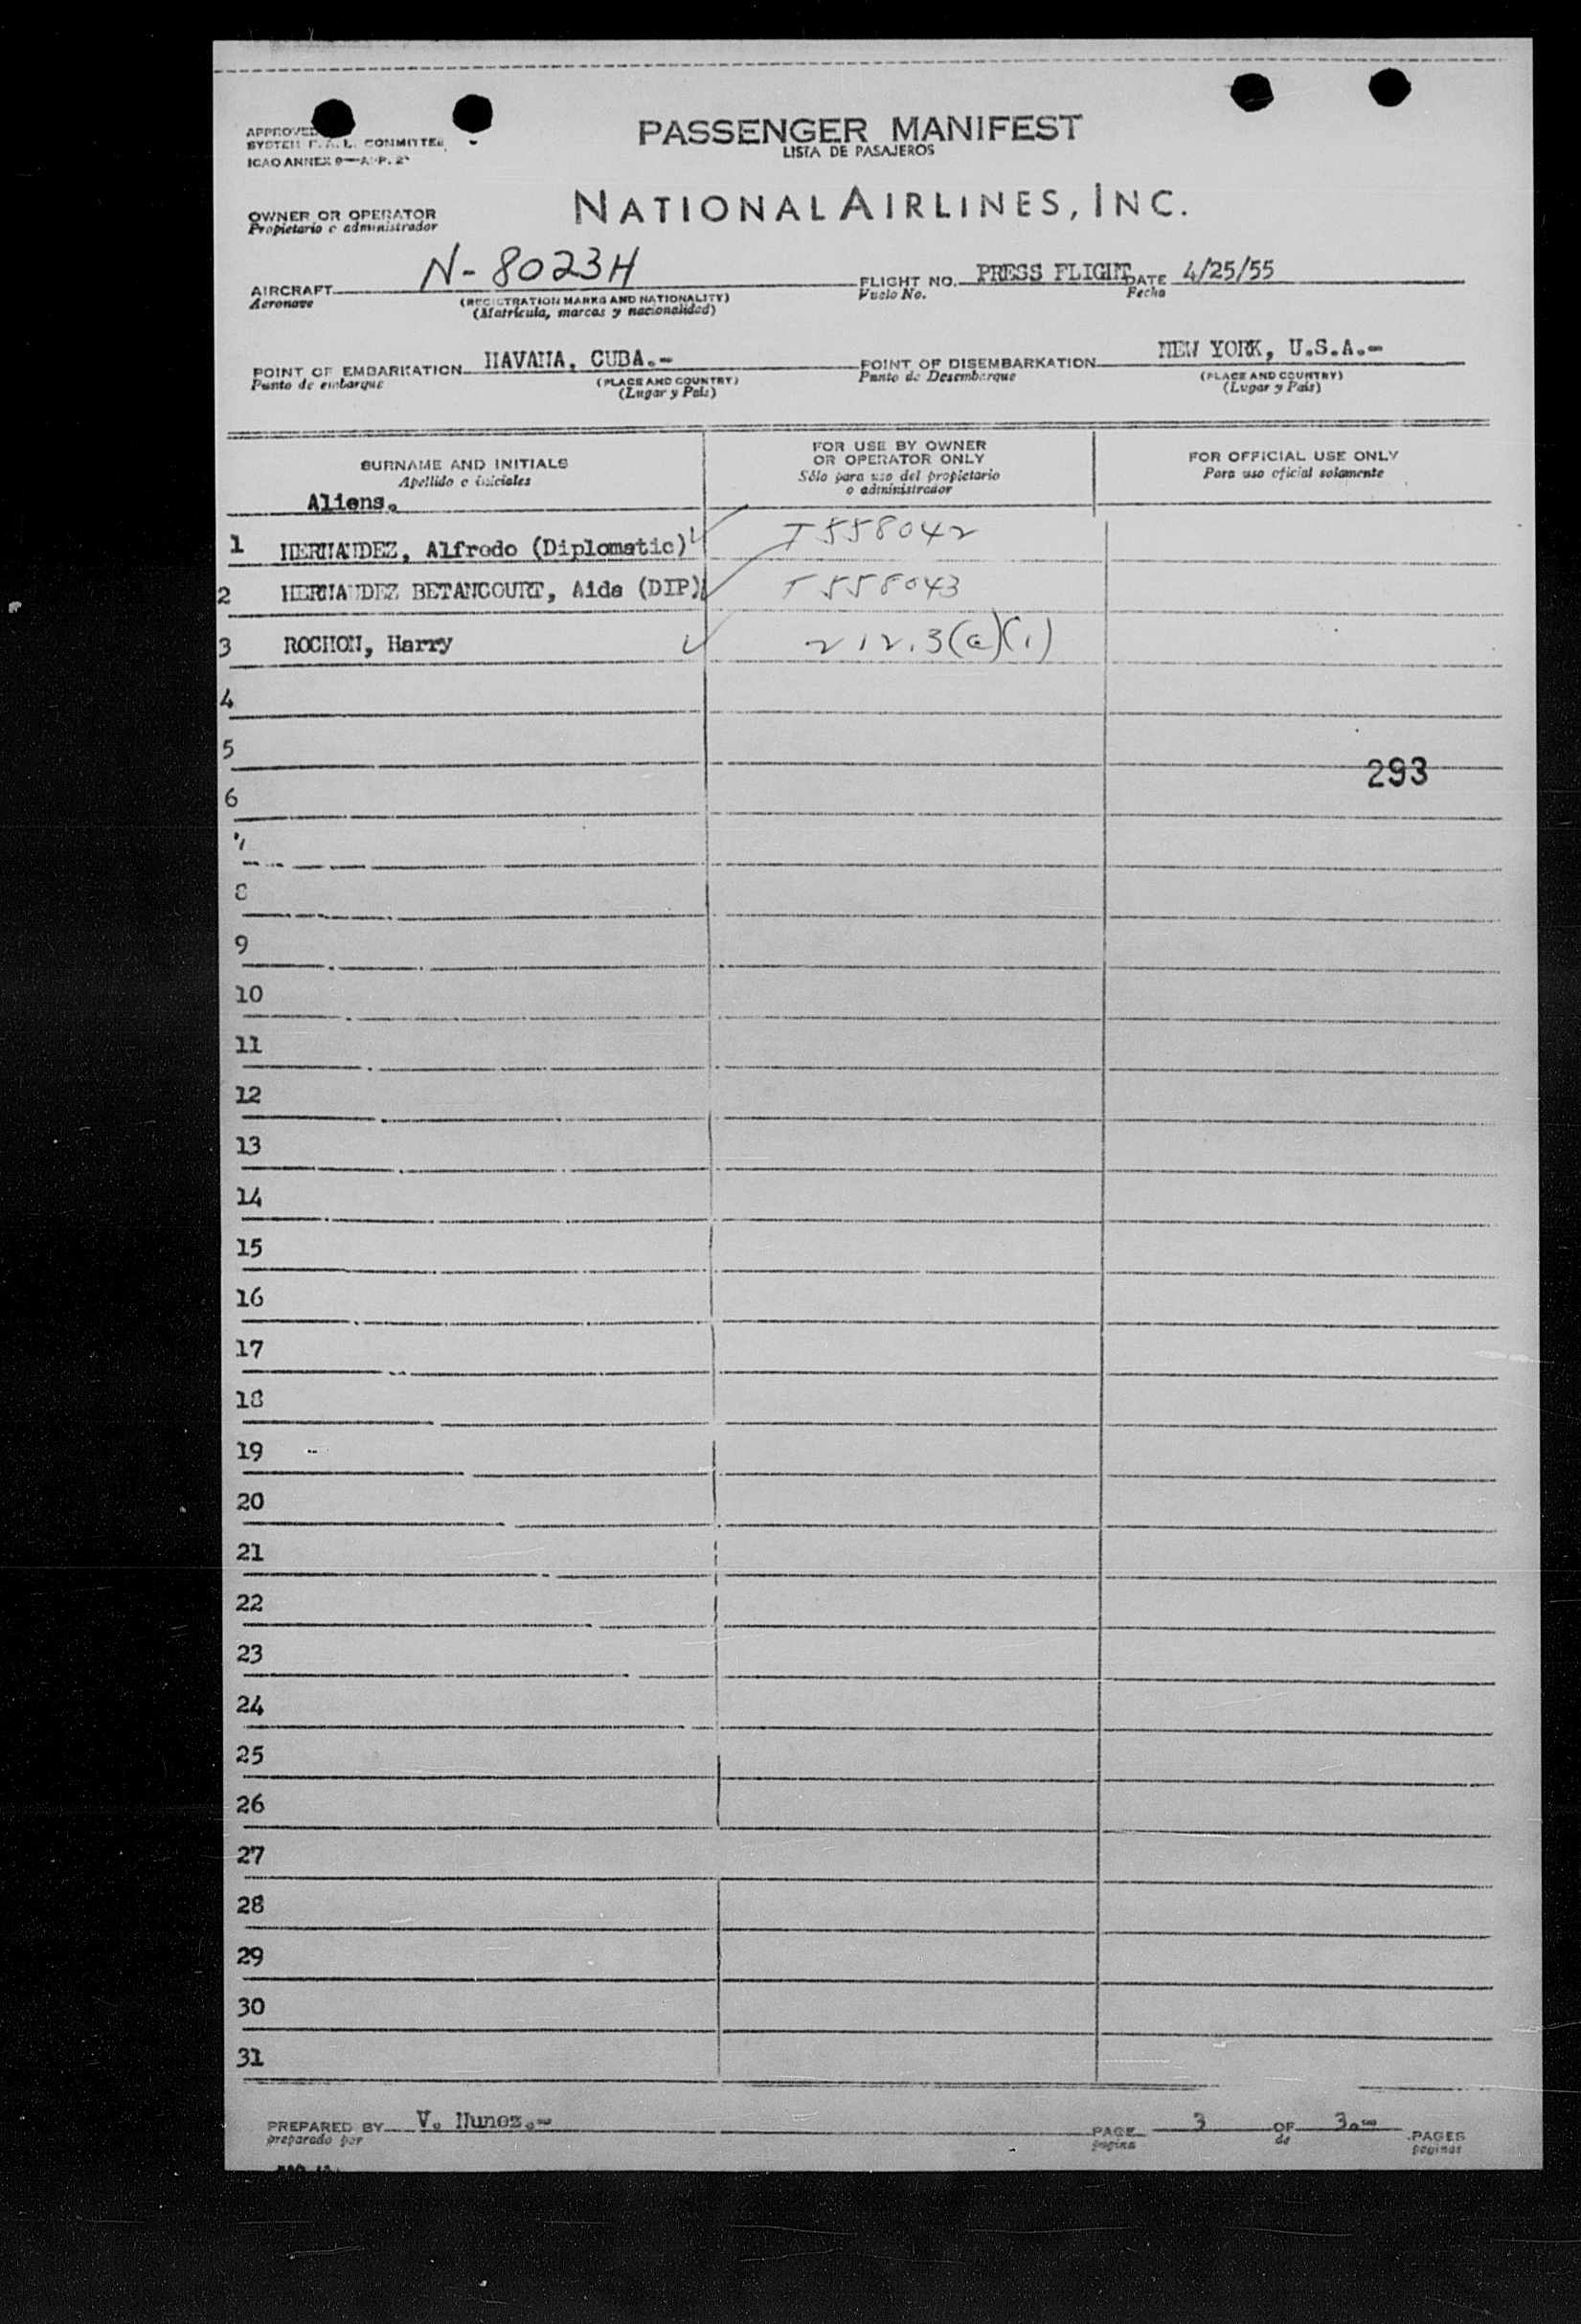 PASSENGER MANIFEST
LISTA DE PASAJEROS
APPROVED
SYSTEM F. A. L. COMMITTEE
ICAO ANNEX 9—APP. 2
NATIONAL AIRLINES, INC.
OWNER OR OPERATOR
Propietario o administrador
AIRCRAFT N-8023H FLIGHT NO. PRESS FLIGHT DATE 4/25/55
Aeronave (REGISTRATION MARKS AND NATIONALITY) Vuelo No. Fecha
(Matrícula, marcas y nacionalidad)
POINT OF EMBARKATION HAVANA, CUBA.- POINT OF DISEMBARKATION NEW YORK, U.S.A.-
Punto de embarque (PLACE AND COUNTRY) Punto de Desembarque (PLACE AND COUNTRY)
(Lugar y País) (Lugar y País)
SURNAME AND INITIALS FOR USE BY OWNER OR OPERATOR ONLY FOR OFFICIAL USE ONLY
Apellido e iniciales Sólo para uso del propietario o administrador Para uso oficial solamente
Aliens.
1 HERNANDEZ, Alfredo (Diplomatic) T558042
2 HERNANDEZ BETANCOURT, Aida (DIP) T558043
3 ROCHON, Harry 212.3(a)(1)
4
5
293
6
7
8
9
10
11
12
13
14
15
16
17
18
19
20
21
22
23
24
25
26
27
28
29
30
31
PREPARED BY V. Nunez.- PAGE 3 OF 3.- PAGES
preparado por página de páginas